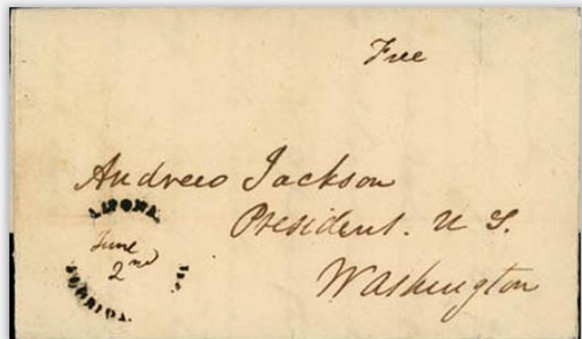 Free
Andrew Jackson
President. U S.
Washington
LIPONA.
June
2nd
FLORIDA.